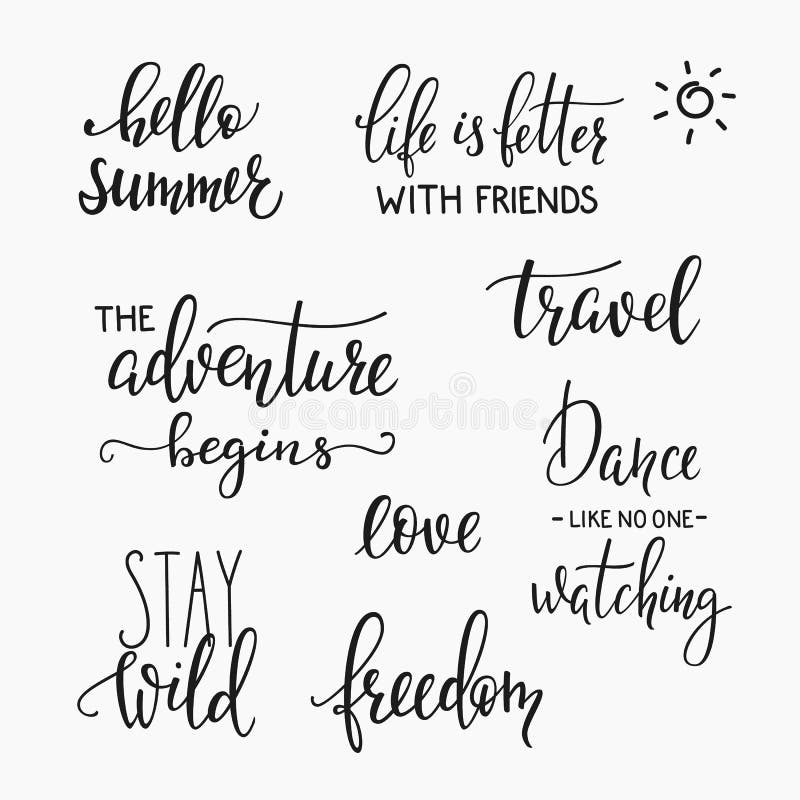 hello
summer
life is better
WITH FRIENDS
travel
THE
adventure
begins
Dance
- LIKE NO ONE -
watching
love
STAY
wild
freedom
dreamstime